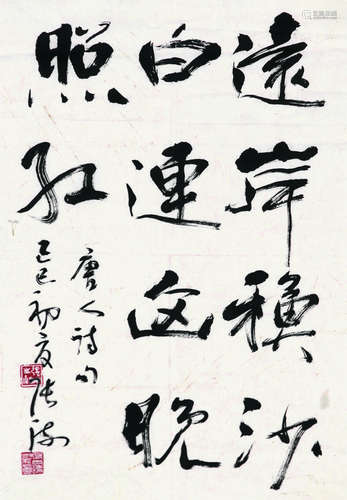 遠岸沙
白連晚
照紅
唐人詩句
己巳初夏